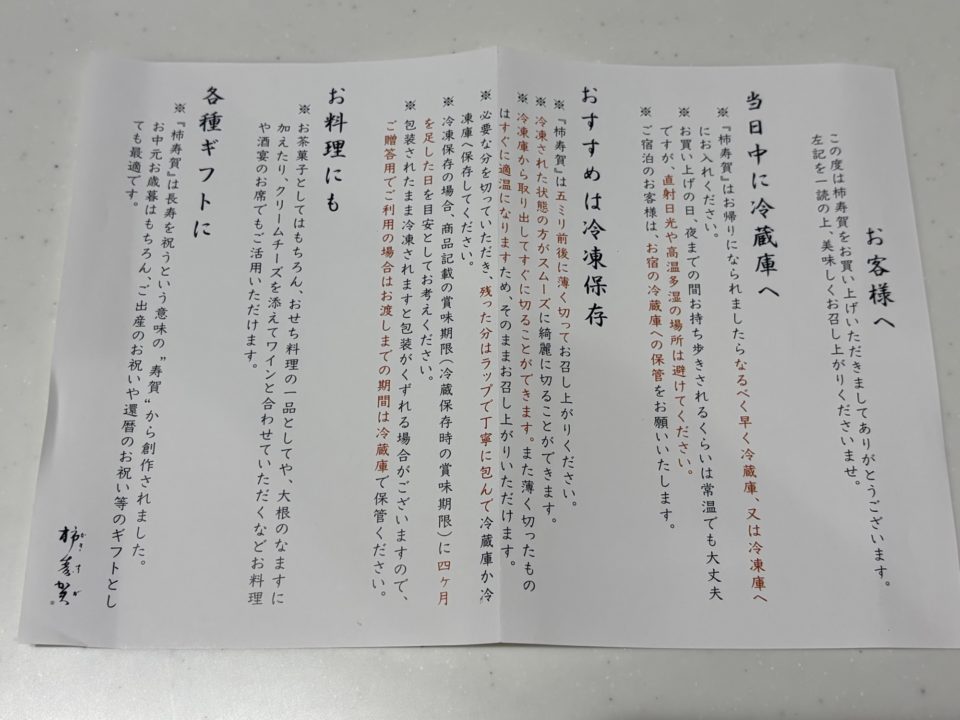 お客様へ
この度は柿寿賀をお買い上げいただきましてありがとうございます。
左記を一読の上、美味しくお召し上がりくださいませ。
当日中に冷蔵庫へ
※『柿寿賀』はお帰りになられましたらなるべく早く冷蔵庫、又は冷凍庫へ
にお入れください。
※お買い上げの日、夜までの間お持ち歩きされるくらいは常温でも大丈夫
ですが、直射日光や高温多湿の場所は避けてください。
※ご宿泊のお客様は、お宿の冷蔵庫への保管をお願いいたします。
おすすめは冷凍保存
※『柿寿賀』は五ミリ前後に薄く切ってお召し上がりください。
※冷凍された状態の方がスムーズに綺麗に切ることができます。
※冷凍庫から取り出してすぐに切ることができます。また薄く切ったもの
はすぐに適温になりますため、そのままお召し上がりいただけます。
※必要な分を切っていただき、残った分はラップで丁寧に包んで冷蔵庫か冷
凍庫へ保存してください。
※冷凍保存の場合、商品記載の賞味期限(冷蔵保存時の賞味期限)に四ヶ月
を足した日を目安としてお考えください。
※包装されたまま冷凍されますと包装がくずれる場合がございますので、
ご贈答用でご利用の場合はお渡しまでの期間は冷蔵庫で保管ください。
お料理にも
※お茶菓子としてはもちろん、おせち料理の一品としてや、大根のなますに
加えたり、クリームチーズを添えてワインと合わせていただくなどお料理
や酒宴のお席でもご活用いただけます。
各種ギフトに
※『柿寿賀』は長寿を祝うという意味の”寿賀“から創作されました。
お中元お歳暮はもちろん、ご出産のお祝いや還暦のお祝い等のギフトとし
ても最適です。
柿寿賀